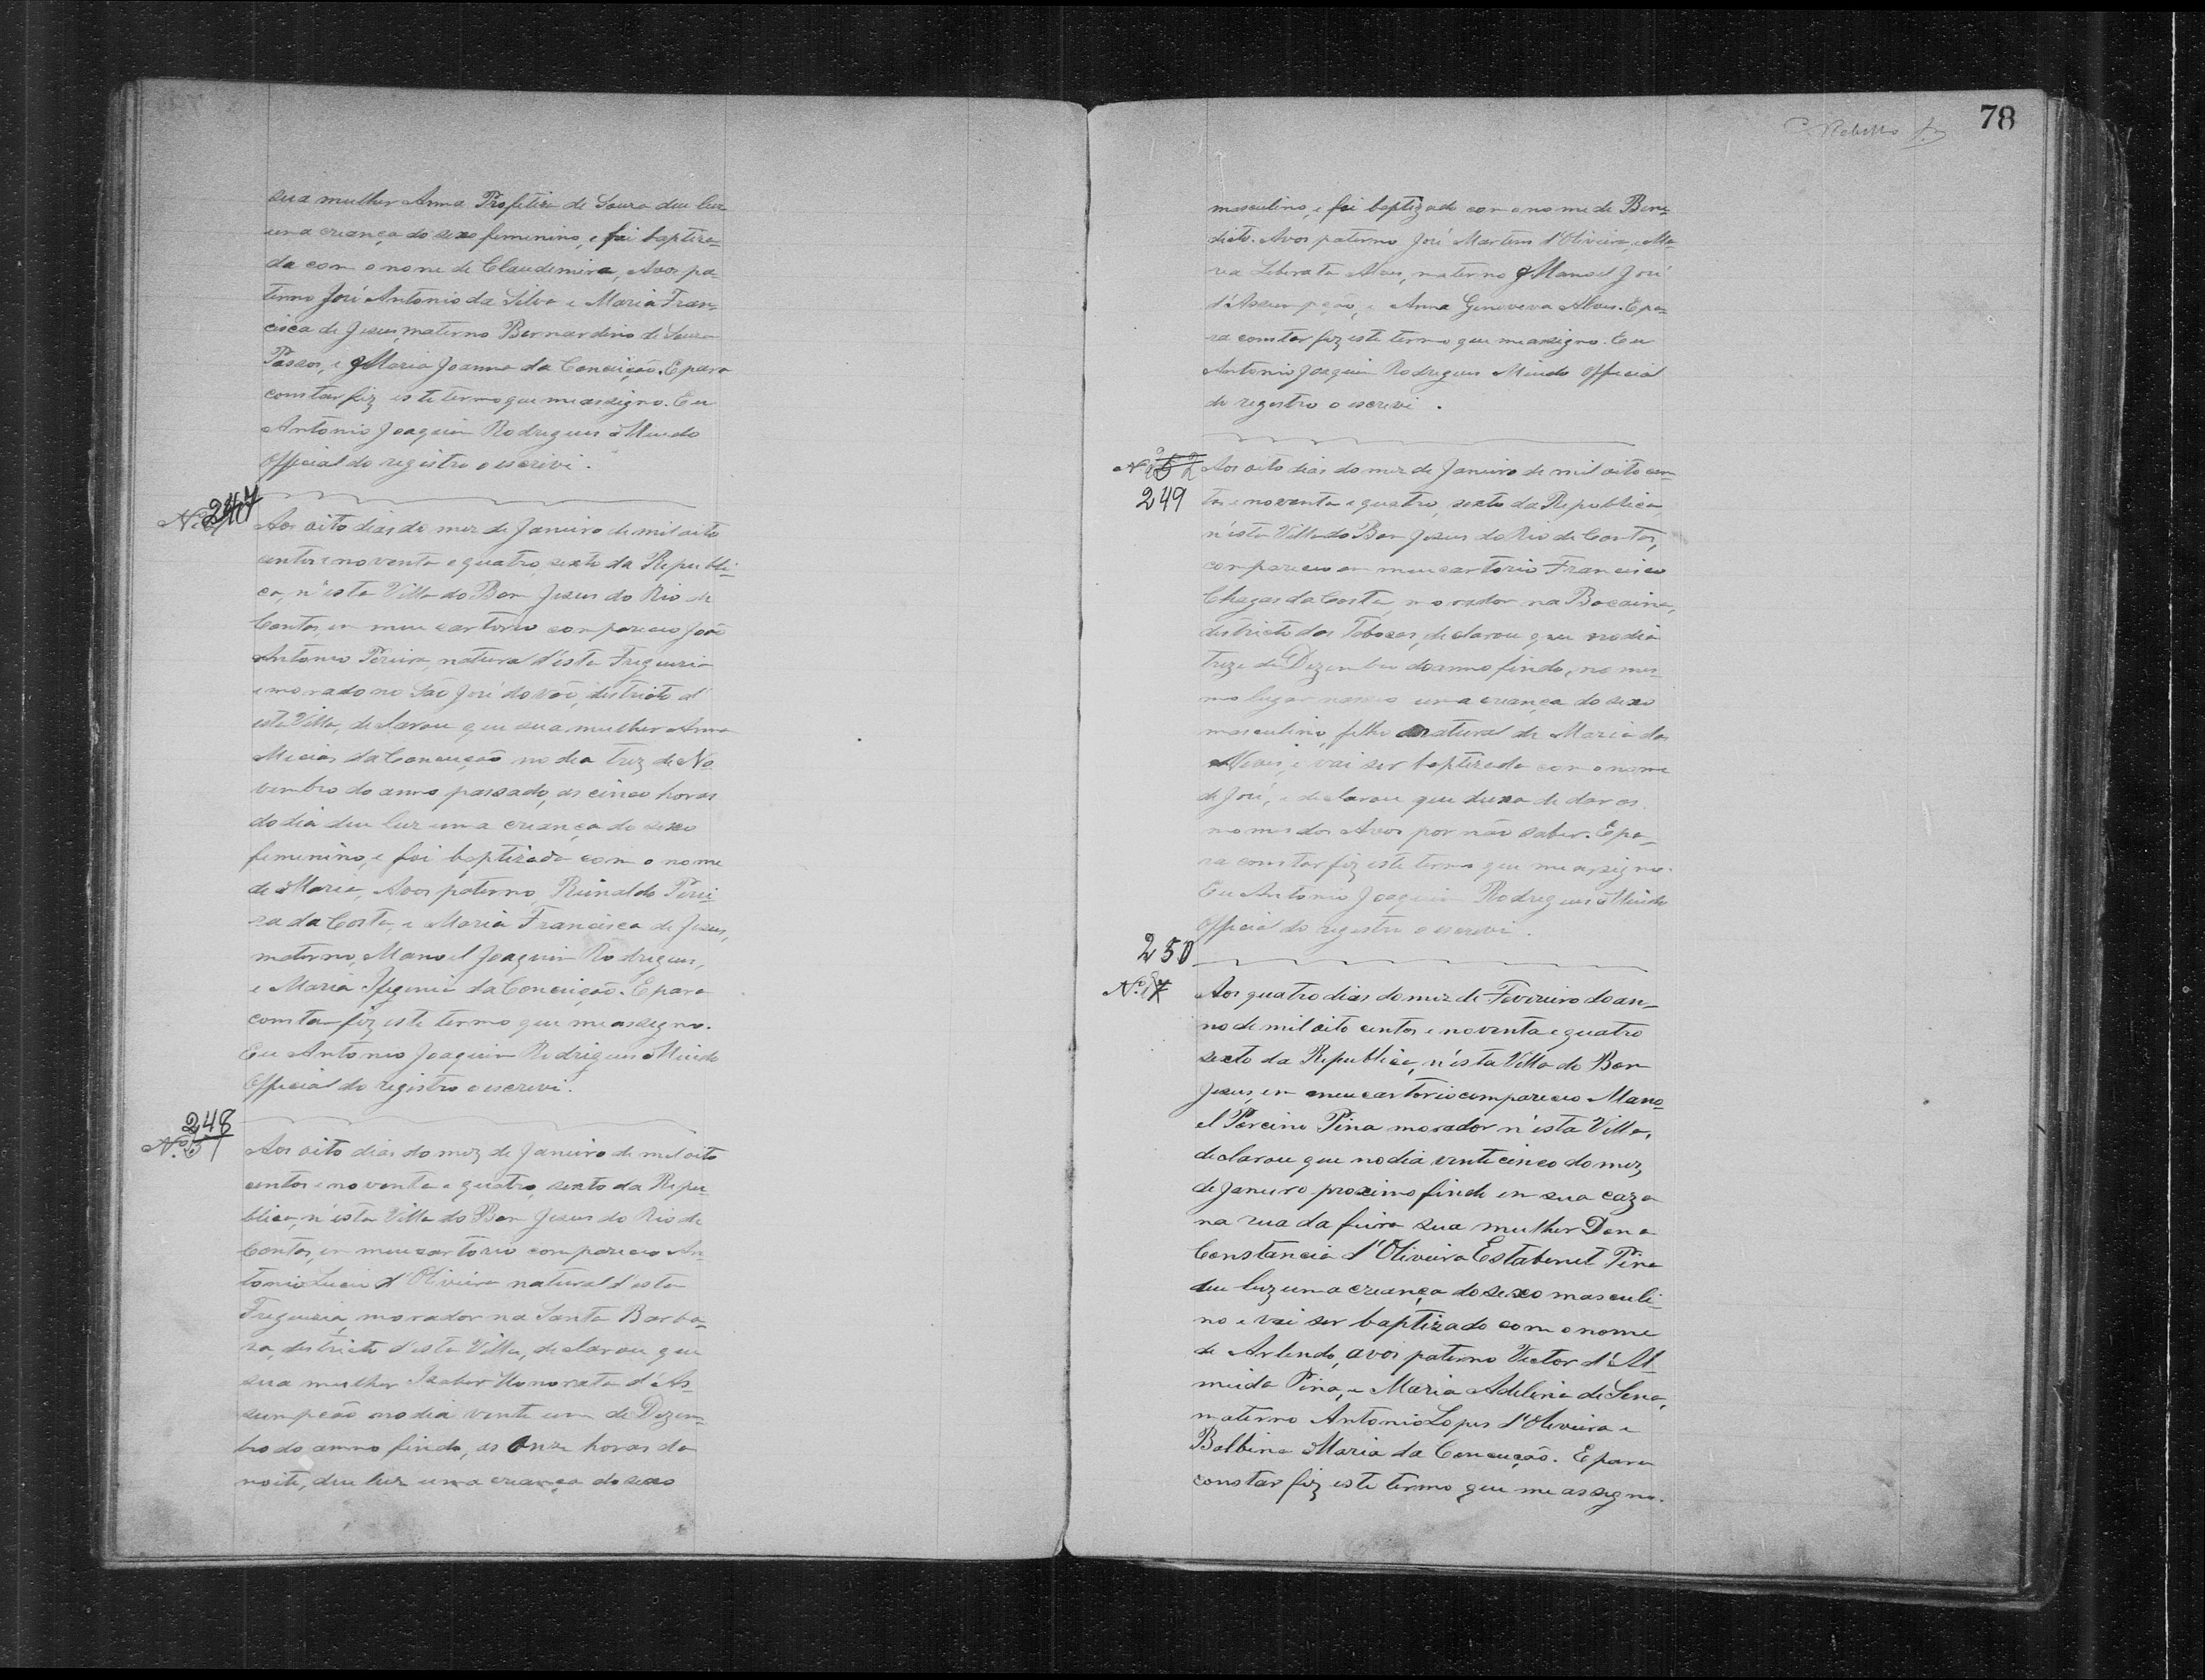 sua mulher Anna Profetiza de Souza deu luz
uma criança do sexo femenino, e foi baptiza-
da com o nome de Claudemira, Avos pa-
terno José Antonio da Silva e Maria Fran-
cisca de Jesus, materno Bernardino de Souza
Passos, e Maria Joanna da Conceição. E para
constar fiz este termo que me assigno. Eu
Antonio Joaquim Rodrigues
Official do registro o escrevi.
247
Nº
Aos oito dias do mez de Janeiro de mil oito
centos e noventa e quatro, sexto da Republi-
ca, n'esta Villa do Bom Jesus do Rio de
Contas, em meu cartorio compareceo João
Antonio Pereira, natural d'esta Freguezia
e morado no São José do districto d'
esta Villa, declarou que sua mulher Anna
da Conceição no dia trez de No
vembro do anno passado, as cinco horas
do dia deu luz uma criança do sexo
femenino, e foi baptizada com o nome
de Maria, Avos paterno, Reinaldo Perei-
ra da Costa, e Maria Francisca de Jesus,
materno, Manoel Joaquim Rodrigues,
e Maria Ifigenia da Conceição. E para
constar fiz este termo que me assigno.
Eu Antonio Joaquim Rodrigues
Official do registro o escrevi.
248
Nº
Aos oito dias do mez de Janeiro de mil oito
centos e noventa e quatro, sexto da Repu-
blica, n'esta Villa do Bom Jesus do Rio de
Contas, em meu cartorio compareceo An-
tonio Lucio d'Oliveira natural d'esta
Freguezia, morador na Santa Barba-
ra, districto d'esta Villa, declarou que
sua mulher Izabel Honorata d'As-
sumpção no dia vente um de Dezem-
bro do anno findo, as Onze horas da
noite, deu luz uma criança do sexo
78
masculino, e foi baptizado com o nome de Bene-
dicto. Avos paterno José Martins d'Oliveira, e Ma-
ria Liberata Alves, materno Manoel José
d'Assumpção, e Anna Genoveva Alves. E pa-
ra constar fiz este termo que me assigno. Eu
Antonio Joaquim Rodrigues Official
do registro o escrevi.
Nº
249
Aos oito dias do mez de Janeiro de mil oito cen-
tos e noventa e quatro, sexto da Republica
n'esta Villa do Bom Jesus do Rio de Contas,
compareceo em meu cartorio Francisco
Chagas da Costa, morador na Bocaina,
districto das Tabocas, declarou que no dia
treze de Dezembro do anno findo, no mes-
mo lugar nasceo uma criança do sexo
masculino, filho natural de Maria das
Neves, e vai ser baptizado com o nome
de José, e declarou que deixa de dar os
nomes dos Avos por não saber. E pa-
ra constar fiz este termo que me assigno.
Eu Antonio Joaquim Rodrigues
Official do registro o escrevi.
250
Nº
Aos quatro dias do mez de Fevereiro do an-
no de mil oito centos e noventa e quatro
sexto da Republica, n'esta Villa do Bom
Jesus, em meu cartorio compareceo Mano-
el Porcino Pina morador n'esta Villa,
declarou que no dia vente cinco do mez
de Janeiro proximo findo em sua caza
na rua da feira sua mulher Dona
Constancia d'Oliveira Pina
deu luz uma criança do sexo masculi-
no e vai ser baptizado com o nome
de Arlindo, avos paterno Victor d'Al
meida Pina, e Maria Adelina de Sena,
materno Antonio Lopes d'Oliveira e
Balbina Maria da Conceição. E para
constar fiz este termo que me assigno.